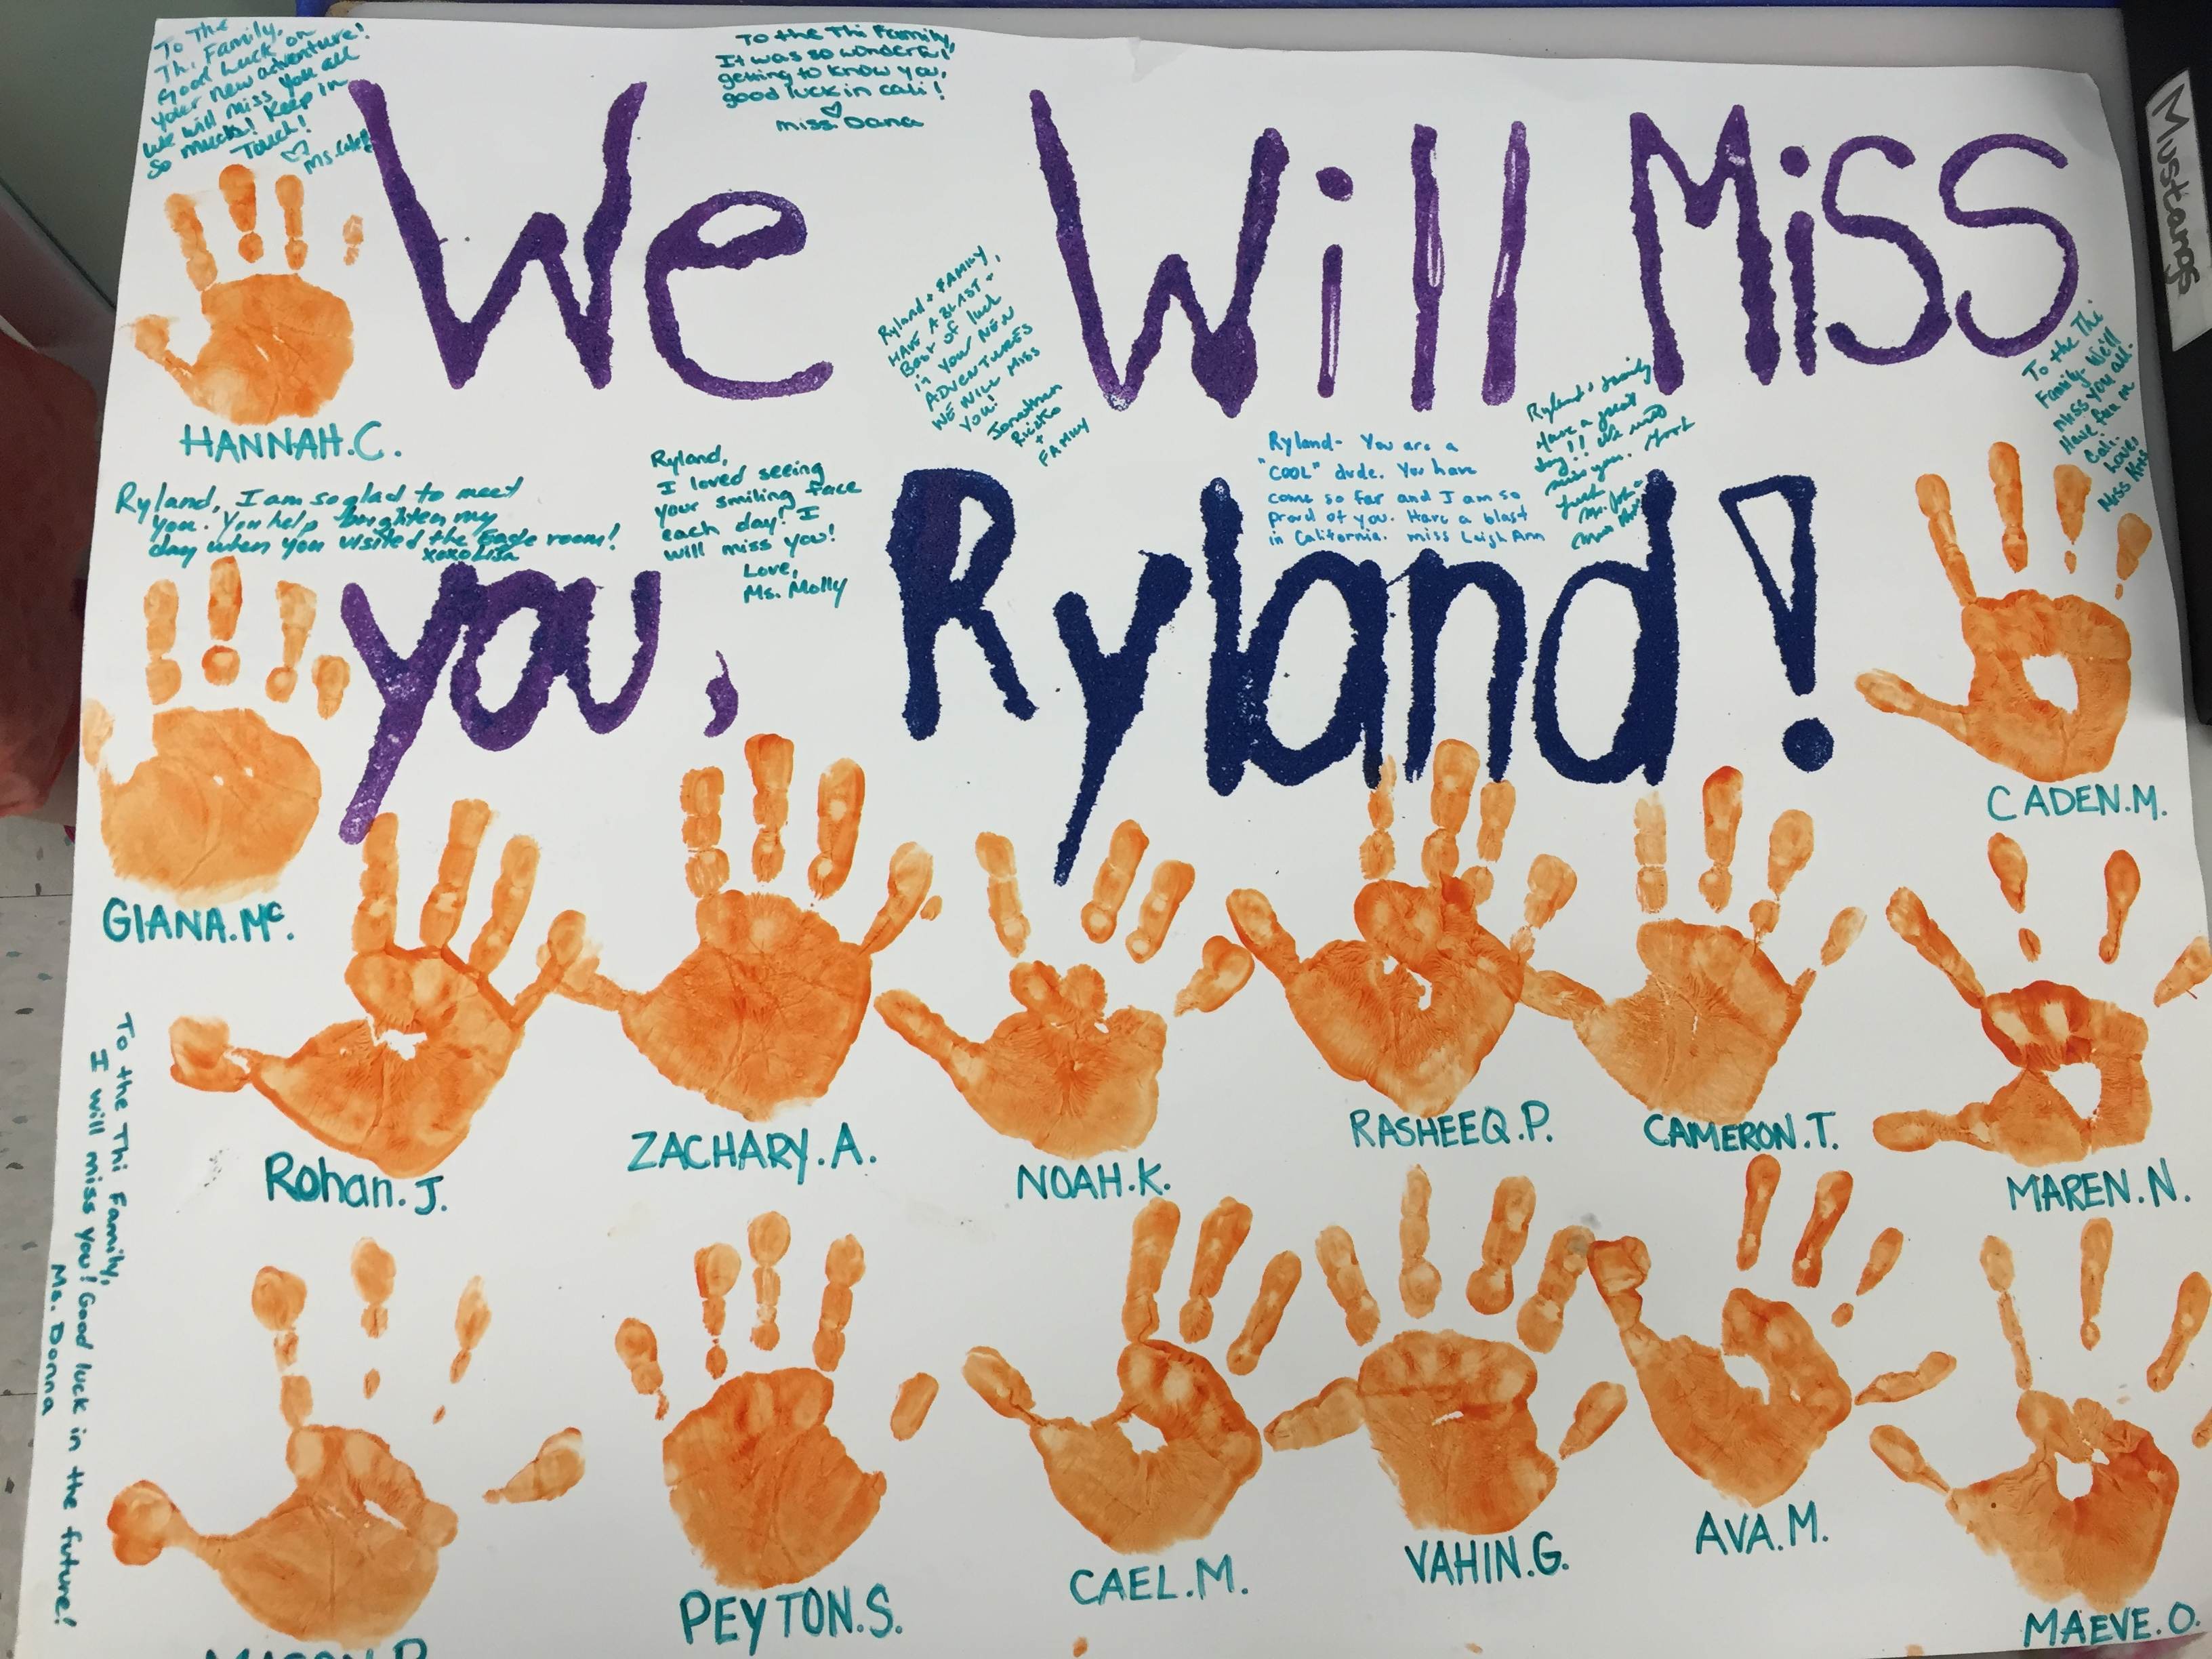 To The
Thi Family,
Good Luck on
your new adventure!
We will miss you all
so much! Keep in
Touch!
♡ Ms.
To the Thi Family,
It was so wonderful
getting to know you,
good luck in cali!
♡
miss Dana
We Will Miss
you, Ryland!
Mustangs
Ryland + FAMILY,
HAVE A BLAST +
Best of luck
in your NEW
ADVENTURES
WE WILL MISS
You!
Jonathan
+
FAMILY
To the Thi
Family- We'll
Miss you all.
Have fun in
Cali.
Love,
Miss
Ryland + family
Have a great
miss you.
Ryland- You are a
"COOL" dude. You have
come so far and I am so
proud of you. Have a blast
in California. miss Leigh Ann
Ryland,
I loved seeing
your smiling face
each day! I
will miss you!
Love,
Ms. Molly
Ryland, I am so glad to meet
you. You help brighten my
day when you visited the Eagle room!
xoxo Lisa
HANNAH.C.
GIANA.Mc.
CADEN.M.
Rohan.J.
ZACHARY.A.
NOAH.K.
RASHEEQ.P.
CAMERON.T.
MAREN.N.
To the Thi Family,
I will miss you! Good luck in the future!
Ms. Donna
PEYTON.S.
CAEL.M.
VAHIN.G.
AVA.M.
MAEVE.O.